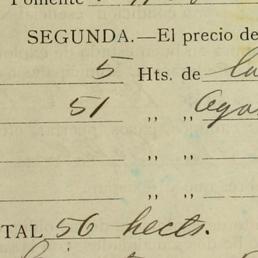 Fomente
SEGUNDA.—El precio de
5 Hts. de
51 " "
" "
" "
TAL 56 hects.